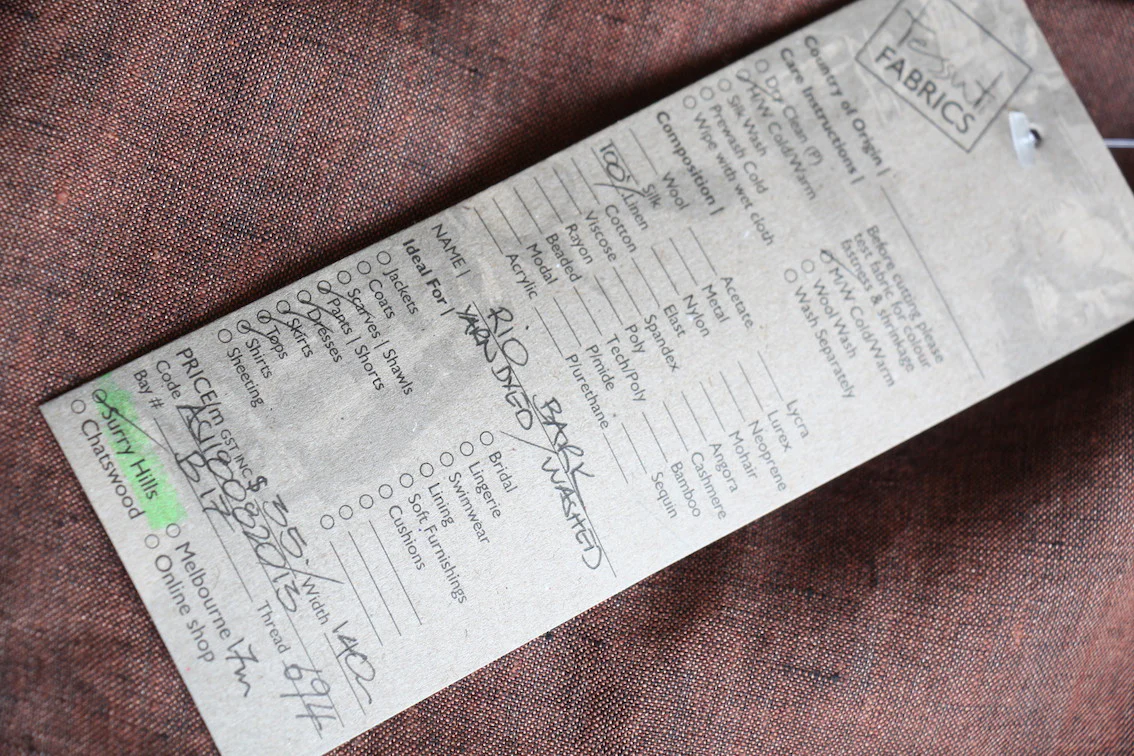 Tessuti
FABRICS
Country of Origin |
Care Instructions |
Dry Clean (P)
M/W Cold/Warm
Silk Wash
Prewash Cold
Wipe with wet cloth
Before cutting please
test fabric for colour
fastness & shrinkage
M/W Cold/Warm
Wool Wash
Wash Separately
Composition |
Wool
Silk
100% Linen
Cotton
Viscose
Rayon
Beaded
Modal
Acrylic
Acetate
Metal
Nylon
Elast
Spandex
Poly
Tech/Poly
P/mide
P/urethane
Lycra
Lurex
Neoprene
Mohair
Angora
Cashmere
Bamboo
Sequin
NAME | RIO BARK
YARN DYED / WASHED
Ideal For |
Jackets
Coats
Scarves | Shawls
Pants | Shorts
Dresses
Skirts
Tops
Shirts
Sheeting
Bridal
Lingerie
Swimwear
Lining
Soft Furnishings
Cushions
PRICE/m GST INC $ 35.- Width 140
Code Thread 694
Bay # B17
Surry Hills
Chatswood
Melbourne 17m
Online shop